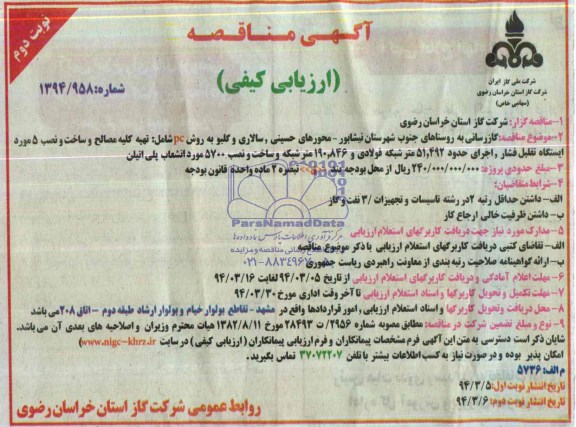 نوبت دوم
آگهی مناقصه
(ارزیابی کیفی)
شماره: ۱۳۹۴/۹۵۸
شرکت ملی گاز ایران
شرکت گاز استان خراسان رضوی
(سهامی خاص)
۱-مناقصه گزار: شرکت گاز استان خراسان رضوی
۲-موضوع مناقصه: گازرسانی به روستاهای جنوب شهرستان نیشابور - محورهای حسینی، سالاری و گلبو به روش pc شامل: تهیه کلیه مصالح و ساخت و نصب ۵ مورد
ایستگاه تقلیل فشار، اجرای حدود ۵۱,۴۹۲ متر شبکه فولادی و ۱۹۰,۸۴۶ متر شبکه و ساخت و نصب ۵۷۰۰ مورد انشعاب پلی اتیلن
۳-مبلغ حدودی پروژه: ۲۴۰/۰۰۰/۰۰۰/۰۰۰ ریال از محل بودجه تبصره ۲ ماده واحده قانون بودجه
۴-شرایط متقاضیان:
الف-داشتن حداقل رتبه ۲ در رشته تاسیسات و تجهیزات / ۳ نفت و گاز
ب-داشتن ظرفیت خالی ارجاع کار
۵-مدارک مورد نیاز جهت دریافت کاربرگهای استعلام ارزیابی
الف-تقاضای کتبی دریافت کاربرگهای استعلام ارزیابی با ذکر موضوع مناقصه
ب-ارائه گواهینامه صلاحیت رتبه بندی از معاونت راهبردی ریاست جمهوری
۶-مهلت اعلام آمادگی و دریافت کاربرگهای استعلام ارزیابی از تاریخ ۹۴/۰۳/۰۵ لغایت ۹۴/۰۳/۱۶
۷-مهلت تکمیل و تحویل کاربرگها و اسناد استعلام ارزیابی تا آخر وقت اداری مورخ ۹۴/۰۳/۳۰
۸-محل دریافت و تحویل کاربرگها و اسناد استعلام ارزیابی، امور قراردادها واقع در مشهد - تقاطع بولوار خیام و بولوار ارشاد طبقه دوم - اتاق ۲۰۸ می باشد
۹-نوع و مبلغ تضمین شرکت در مناقصه: مطابق مصوبه شماره ۲۹۵۶/ت ۲۸۴۹۳ مورخ ۱۳۸۲/۸/۱۱ هیات محترم وزیران و اصلاحیه های بعدی آن می باشد.
شایان ذکر است دسترسی به متن این آگهی فرم مشخصات پیمانکاران و فرم ارزیابی پیمانکاران (ارزیابی کیفی) در سایت (www.nigc-khrz.ir)
امکان پذیر بوده و در صورت نیاز به کسب اطلاعات بیشتر با تلفن ۳۷۰۷۲۲۰۷ تماس بگیرید.
م الف: ۵۷۳۶
تاریخ انتشار نوبت اول: ۹۴/۳/۵
تاریخ انتشار نوبت دوم: ۹۴/۳/۶
روابط عمومی شرکت گاز استان خراسان رضوی
ParsNamadData
۰۲۱-۸۸۳۴۹۶۷۰